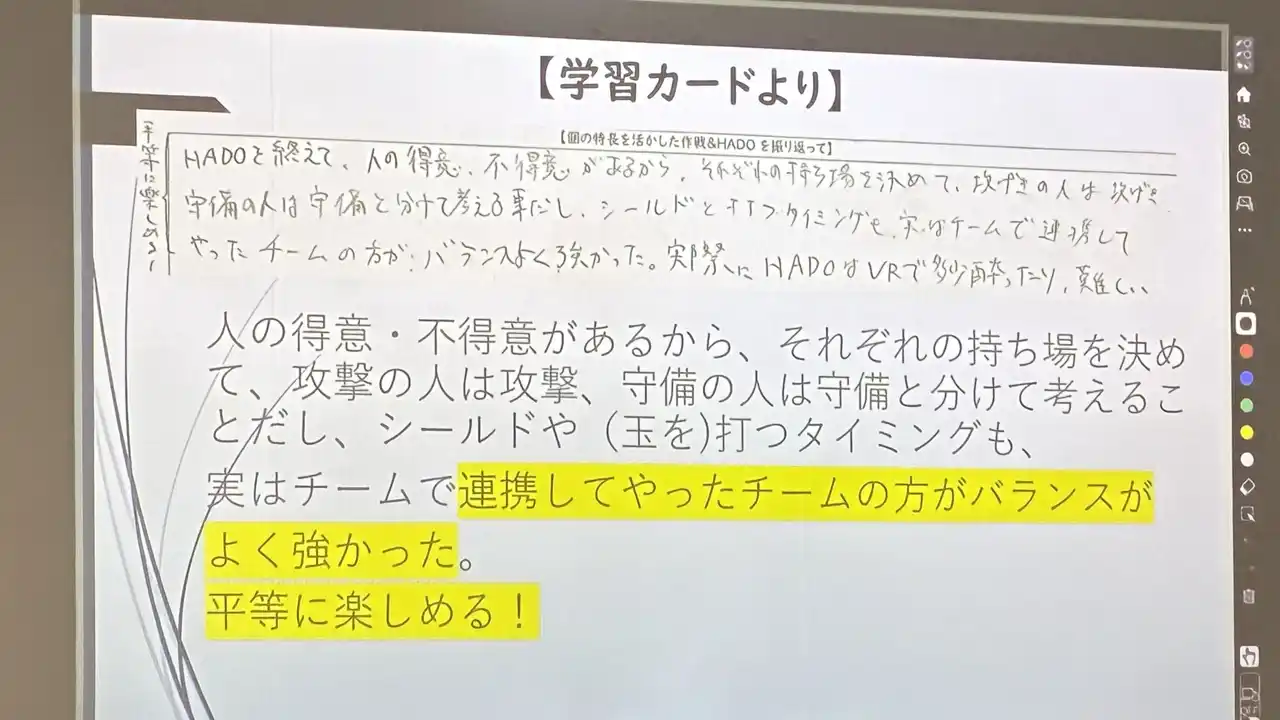 【学習カードより】
【個の特長を活かした作戦&HADOを振り返って】
平等に楽しめる!
HADOを終えて、人の得意、不得意があるから、それぞれの持ち場を決めて、攻げきの人は攻げき
守備の人は守備と分けて考える事だし、シールドと打つタイミングも、実はチームで連携して
やったチームの方が、バランスよく強かった。実際にHADOはVRで多少酔ったり、難しい
人の得意・不得意があるから、それぞれの持ち場を決め
て、攻撃の人は攻撃、守備の人は守備と分けて考えるこ
とだし、シールドや(玉を)打つタイミングも、
実はチームで連携してやったチームの方がバランスが
よく強かった。
平等に楽しめる!